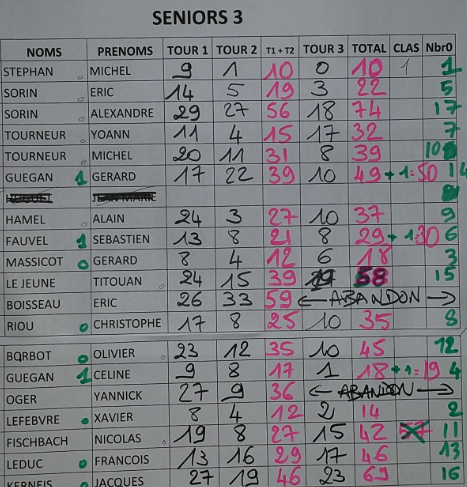 SENIORS 3
NOMS PRENOMS TOUR 1 TOUR 2 T1 + T2 TOUR 3 TOTAL CLAS Nbr0
STEPHAN MICHEL 9 1 10 0 10 1 1
SORIN ERIC 14 5 19 3 22 5
SORIN ALEXANDRE 29 27 56 18 74 17
TOURNEUR YOANN 11 4 15 17 32 7
TOURNEUR MICHEL 20 11 31 8 39 10
GUEGAN 1 GERARD 17 22 39 10 49 + 1 = 50 14
HAMEL ALAIN 24 3 27 10 37 9
FAUVEL 1 SEBASTIEN 13 8 21 8 29 + 1 = 30 6
MASSICOT 0 GERARD 8 4 12 6 18 3
LE JEUNE TITOUAN 24 15 39 19 58 15
BOISSEAU ERIC 26 33 59 ← ABANDON →
RIOU 0 CHRISTOPHE 17 8 25 10 35 8
BQRBOT 0 OLIVIER 23 12 35 10 45 12
GUEGAN 1 CELINE 9 8 17 1 18 + 1 = 19 4
OGER YANNICK 27 9 36 ← ABANDON →
LEFEBVRE 0 XAVIER 8 4 12 2 14 2
FISCHBACH NICOLAS 19 8 27 15 42 11
LEDUC 0 FRANCOIS 13 16 29 17 46 13
KERNEIS 0 JACQUES 27 19 46 23 69 16